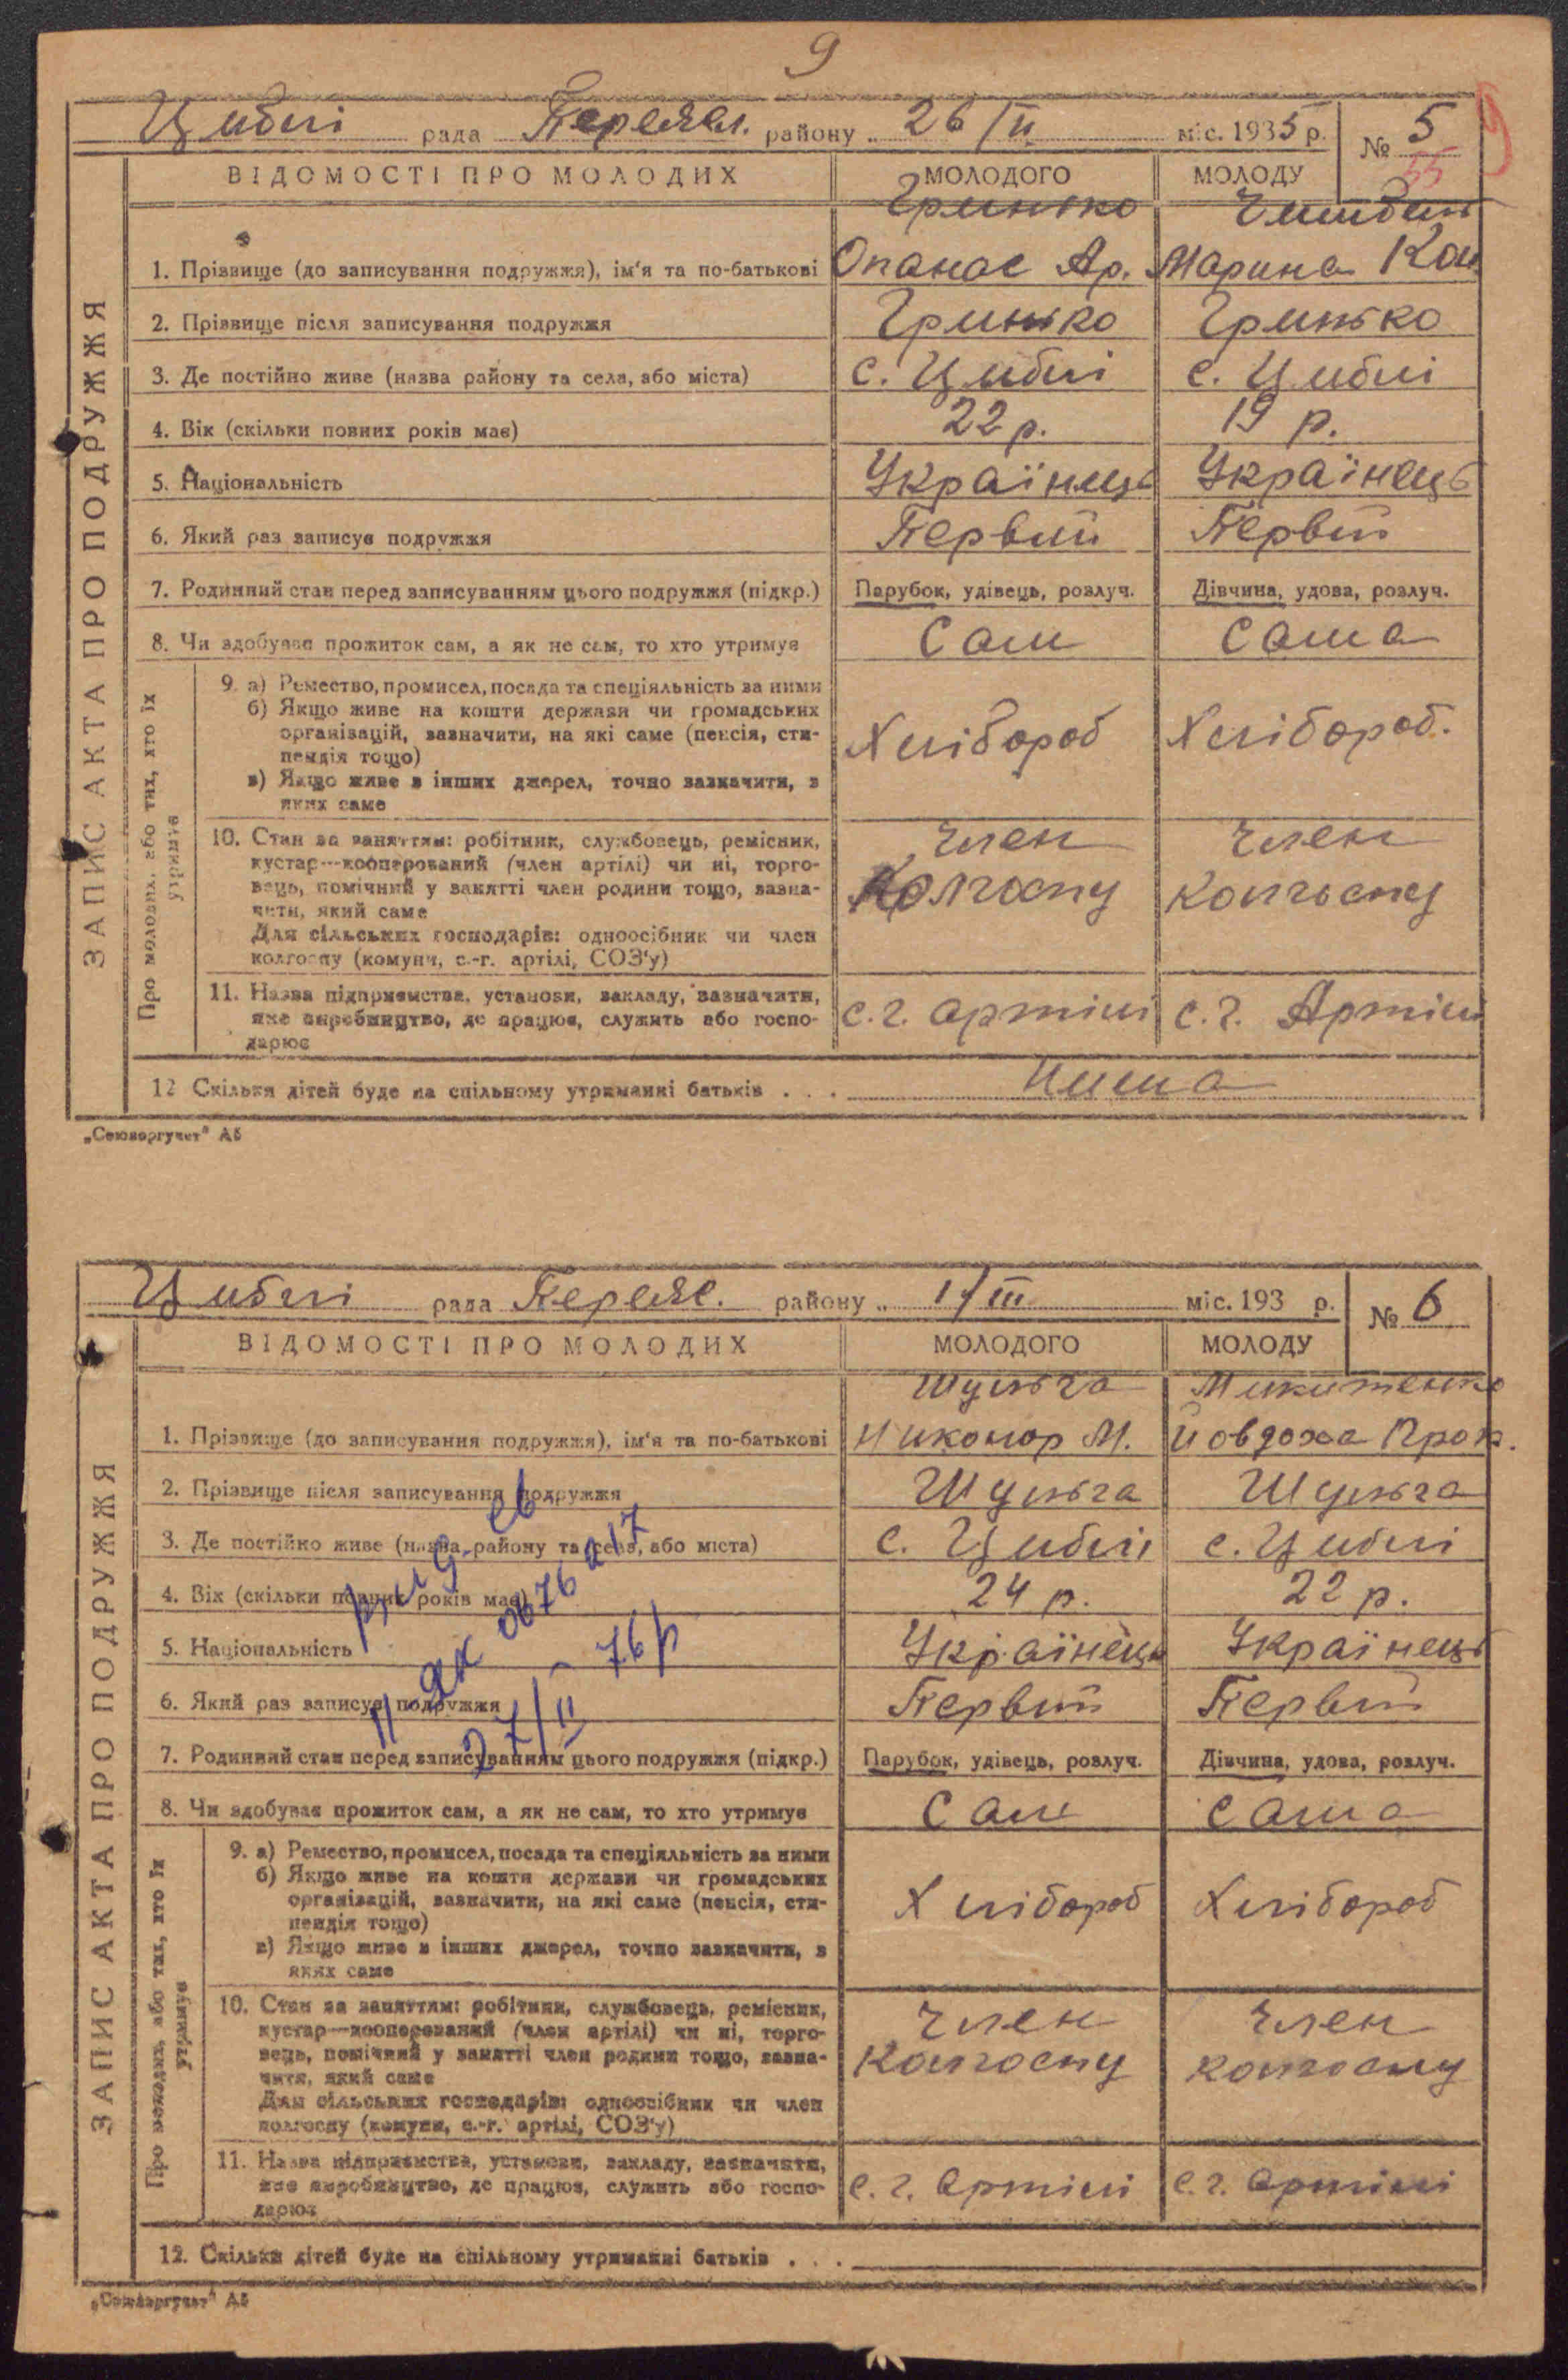 9
Циблі рада Переясл. району „ 26/II міс. 1935 р. № 5
55
ВІДОМОСТІ ПРО МОЛОДИХ МОЛОДОГО МОЛОДУ
Гринько
1. Прізвище (до записування подружжя), ім'я та по-батькові Опанас Ар. Марина Кон
2. Прізвище після записування подружжя Гринько Гринько
3. Де постійно живе (назва району та села, або міста) с. Циблі с. Циблі
4. Вік (скільки повних років має) 22 р. 19 р.
5. Національність Українець Українець
6. Який раз записує подружжя Первий Первий
7. Родинний стан перед записуванням цього подружжя (підкр.) Парубок, удівець, розлуч. Дівчина, удова, розлуч.
8. Чи здобуває прожиток сам, а як не сам, то хто утримує Сам Сама
ЗАПИС АКТА ПРО ПОДРУЖЖЯ
Про молодих, або тих, хто їх
утримує
9. а) Ремество, промисел, посада та спеціяльність за ними
б) Якщо живе на кошти держави чи громадських
організацій, зазначити, на які саме (пенсія, сти-
пендія тощо)
в) Якщо живе з інших джерел, точно зазначити, з
яких саме
Хлібороб Хлібороб.
10. Стан за заняттям: робітник, службовець, ремісник,
кустар—кооперований (член артілі) чи ні, торго-
вець, помічний у занятті член родини тощо, зазна-
чити, який саме
Для сільських господарів: одноосібник чи член
колгоспу (комуни, с.-г. артілі, СОЗ'у)
Член Член
Колгоспу колгоспу
11. Назва підприємства, установи, закладу, зазначити,
яке виробництво, де працює, служить або госпо-
дарює
с. г. артілі с. г. Артілі
12 Скільки дітей буде на спільному утриманні батьків . . . Нима
„Союзоргучет" А5
Циблі рада Переясл. району „ 1/III міс. 193 р. № 6
ВІДОМОСТІ ПРО МОЛОДИХ МОЛОДОГО МОЛОДУ
Шульга Микитенко
1. Прізвище (до записування подружжя), ім'я та по-батькові Никонор М. Йовдоха Прок.
2. Прізвище після записування подружжя Шульга Шульга
3. Де постійно живе (назва району та села, або міста) с. Циблі с. Циблі
4. Вік (скільки повних років має) 24 р. 22 р.
5. Національність Українець Українець
6. Який раз записує подружжя Первий Первий
7. Родинний стан перед записуванням цього подружжя (підкр.) Парубок, удівець, розлуч. Дівчина, удова, розлуч.
8. Чи здобуває прожиток сам, а як не сам, то хто утримує Сам Сама
27/II – 76 р
ЗАПИС АКТА ПРО ПОДРУЖЖЯ
Про молодих, або тих, хто їх
утримує
9. а) Ремество, промисел, посада та спеціяльність за ними
б) Якщо живе на кошти держави чи громадських
організацій, зазначити, на які саме (пенсія, сти-
пендія тощо)
в) Якщо живе з інших джерел, точно зазначити, з
яких саме
Хлібороб Хлібороб
10. Стан за заняттям: робітник, службовець, ремісник,
кустар—кооперований (член артілі) чи ні, торго-
вець, помічний у занятті член родини тощо, зазна-
чити, який саме
Для сільських господарів: одноосібник чи член
колгоспу (комуни, с.-г. артілі, СОЗ'у)
Член Член
Колгоспу колгоспу
11. Назва підприємства, установи, закладу, зазначити,
яке виробництво, де працює, служить або госпо-
дарює
с. г. Артілі с. г. Артілі
12. Скільки дітей буде на спільному утриманні батьків . . .
„Союзоргучет" А5